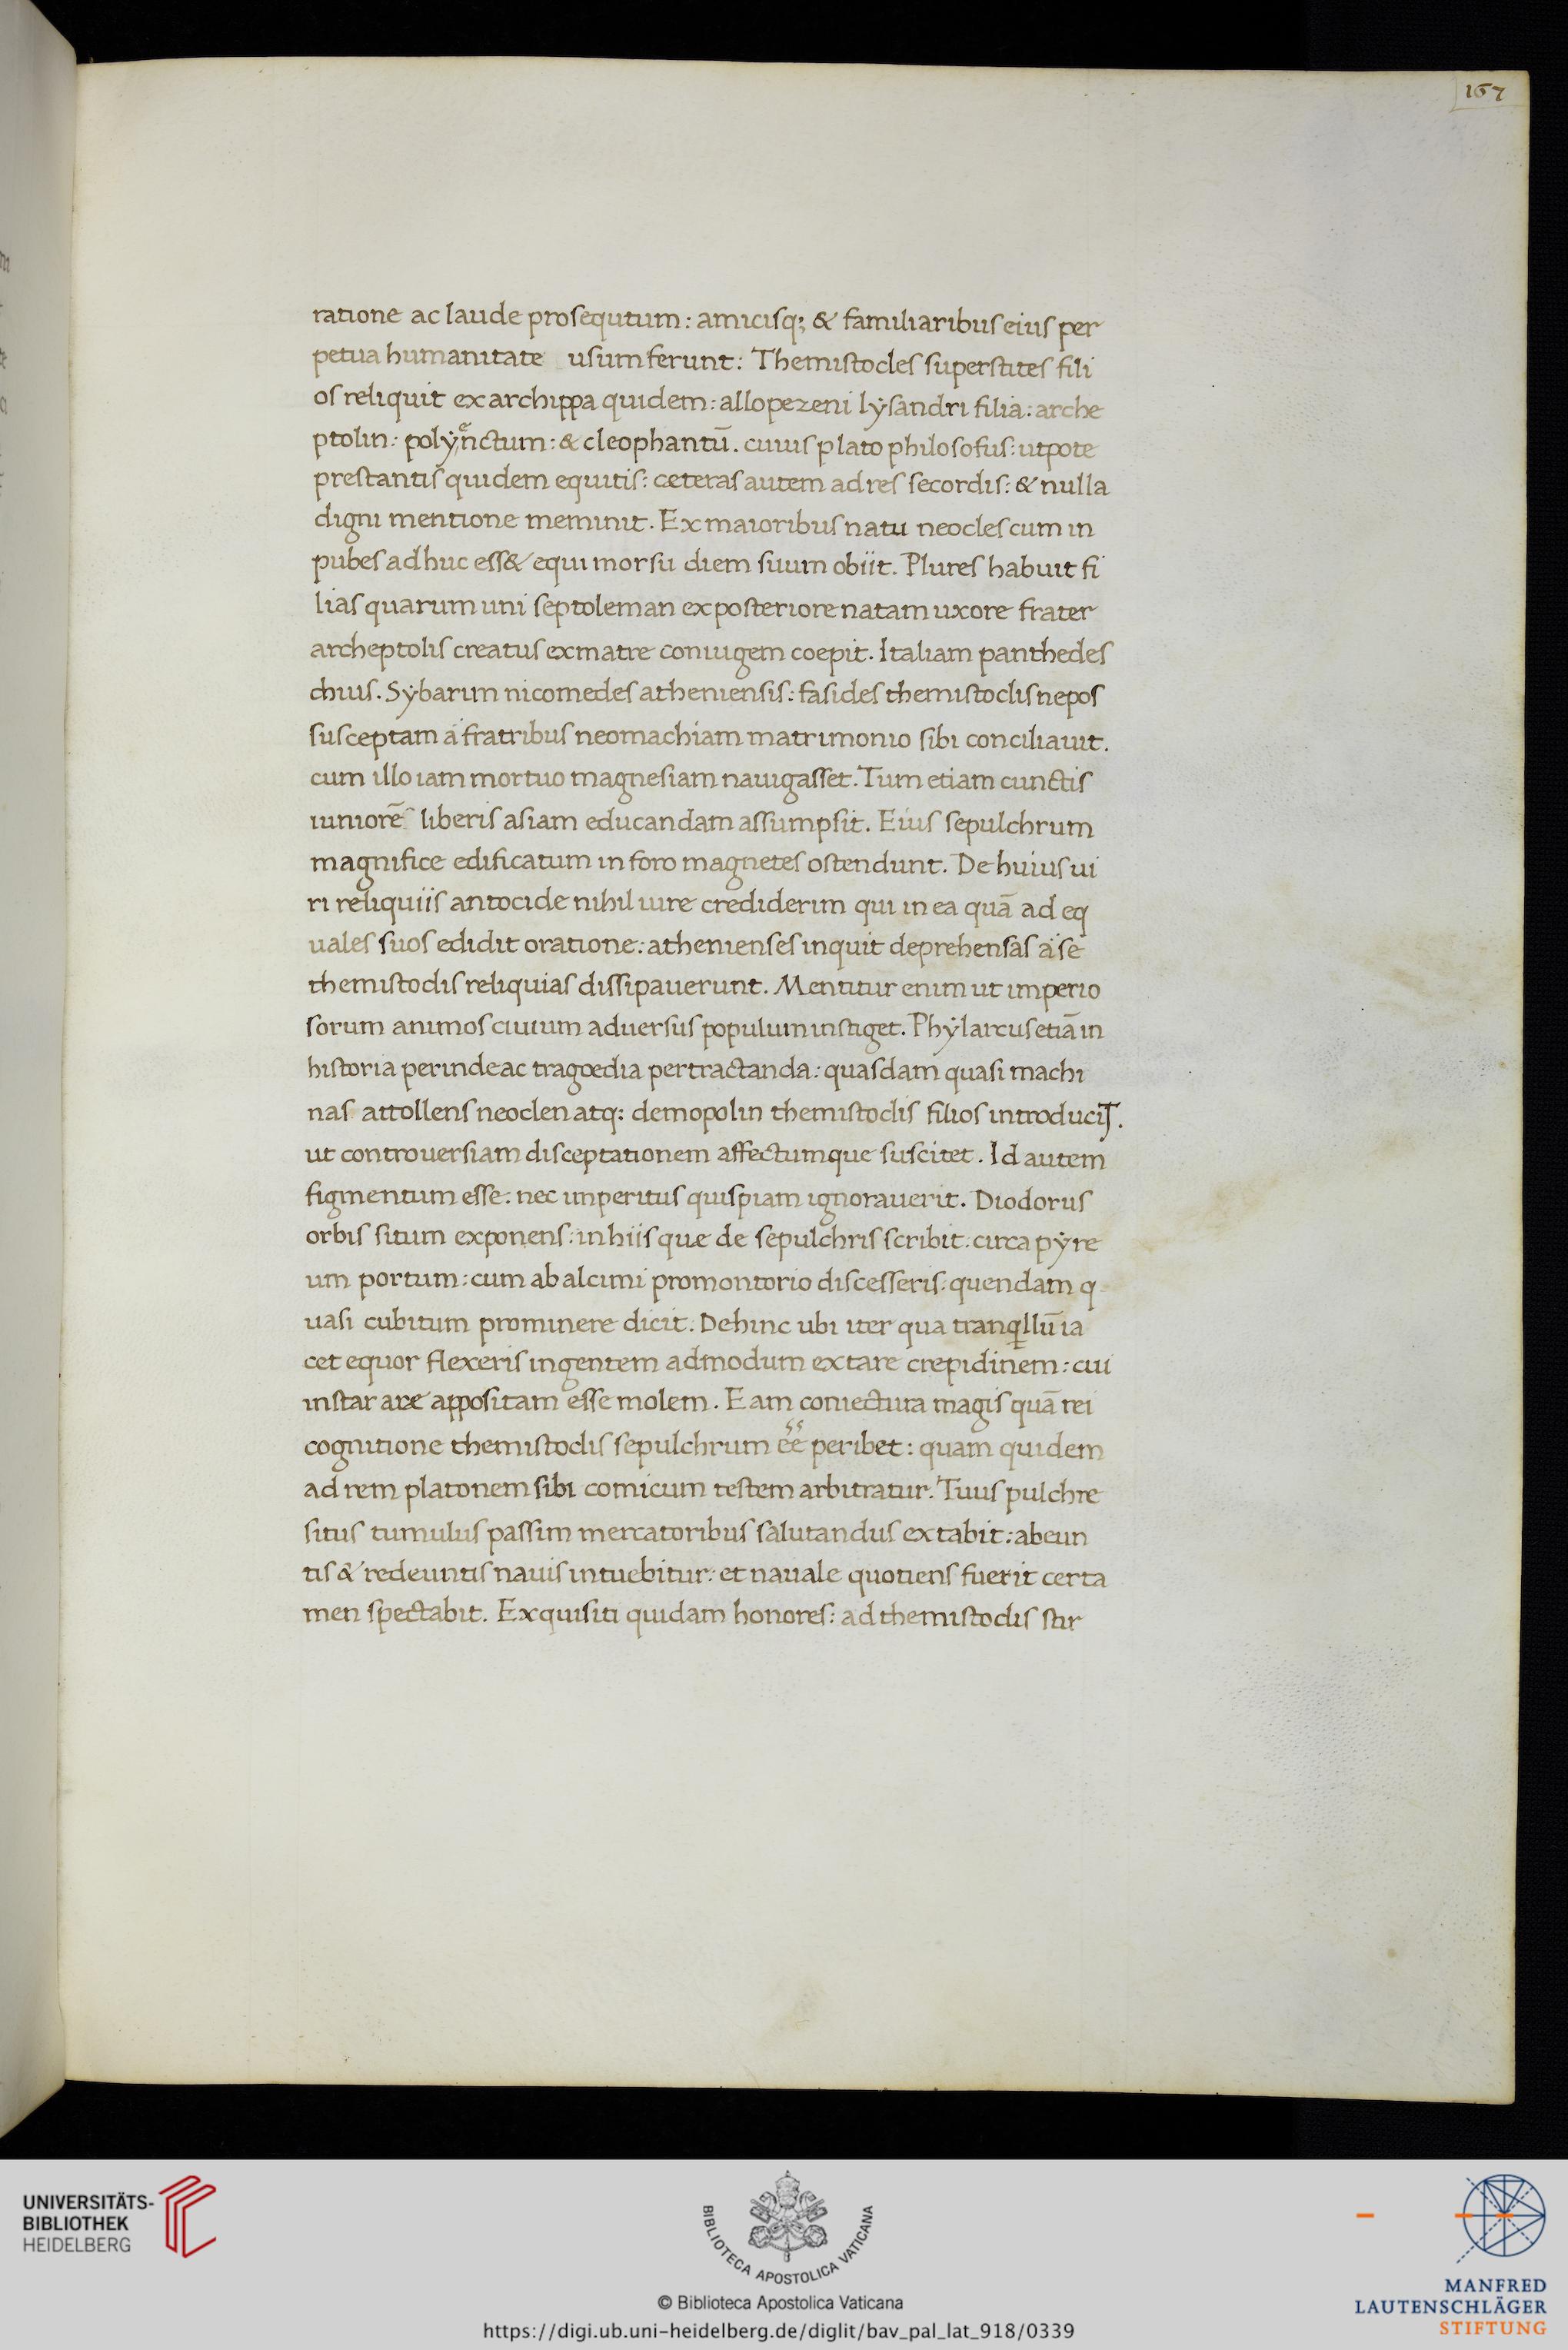 167
ratione ac laude prosequtum: amicisq; & familiaribus eius per
petua humanitate usum ferunt: Themistocles superstites fili
os reliquit ex archippa quidem: allopezeni lẏsandri filia: arche
ptolin: polẏẽnctum: & cleophantū. cuius plato philosofus: utpote
prestantis quidem equitis: ceteras autem ad res secordis: & nulla
digni mentione meminit. Ex maioribus natu neocles cum in
pubes adhuc ess& equi morsu diem suum obiit. Plures habuit fi
lias quarum uni septoleman ex posteriore natam uxore frater
archeptolis creatus ex matre coniugem coepit. Italiam panthedes
chius. Sẏbarim nicomedes atheniensis: fasides themistoclis nepos
susceptam a fratribus neomachiam matrimonio sibi conciliauit.
cum illo iam mortuo magnesiam nauigasset. Tum etiam cunctis
iuniorē liberis asiam educandam assumpsit. Eius sepulchrum
magnifice edificatum in foro magnetes ostendunt. De huius ui
ri reliquiis antocide nihil iure crediderim qui in ea quā ad eq
uales suos edidit oratione: athenienses inquit deprehensas a se
themistoclis reliquias dissipauerunt. Mentitur enim ut imperio
sorum animos ciuium aduersus populum instiget. Phẏlarcus etiā in
historia perinde ac tragoedia pertractanda: quasdam quasi machi
nas attollens neoclen atq: demopolin themistoclis filios introducit.
ut controuersiam disceptationem affectumque suscitet. Id autem
figmentum esse: nec imperitus quispiam ignorauerit. Diodorus
orbis situm exponens: in hiis que de sepulchris scribit: circa pẏre
um portum: cum ab alcimi promontorio discesseris: quendam q
uasi cubitum prominere dicit. Dehinc ubi iter qua tranqllū ia
cet equor flexeris ingentem admodum extare crepidinem: cui
instar are appositam esse molem. Eam coniectura magis quā rei
cognitione themistoclis sepulchrum ee peribet: quam quidem
ad rem platonem sibi comicum testem arbitratur. Tuus pulchre
situs tumulus passim mercatoribus salutandus extabit: abeun
tis & redeuntis nauis intuebitur: et nauale quotiens fuerit certa
men spectabit. Exquisiti quidam honores: ad themistoclis stir
UNIVERSITÄTS-
BIBLIOTHEK
HEIDELBERG
BIBLIOTECA APOSTOLICA VATICANA
© Biblioteca Apostolica Vaticana
https://digi.ub.uni-heidelberg.de/diglit/bav_pal_lat_918/0339
MANFRED
LAUTENSCHLÄGER
STIFTUNG